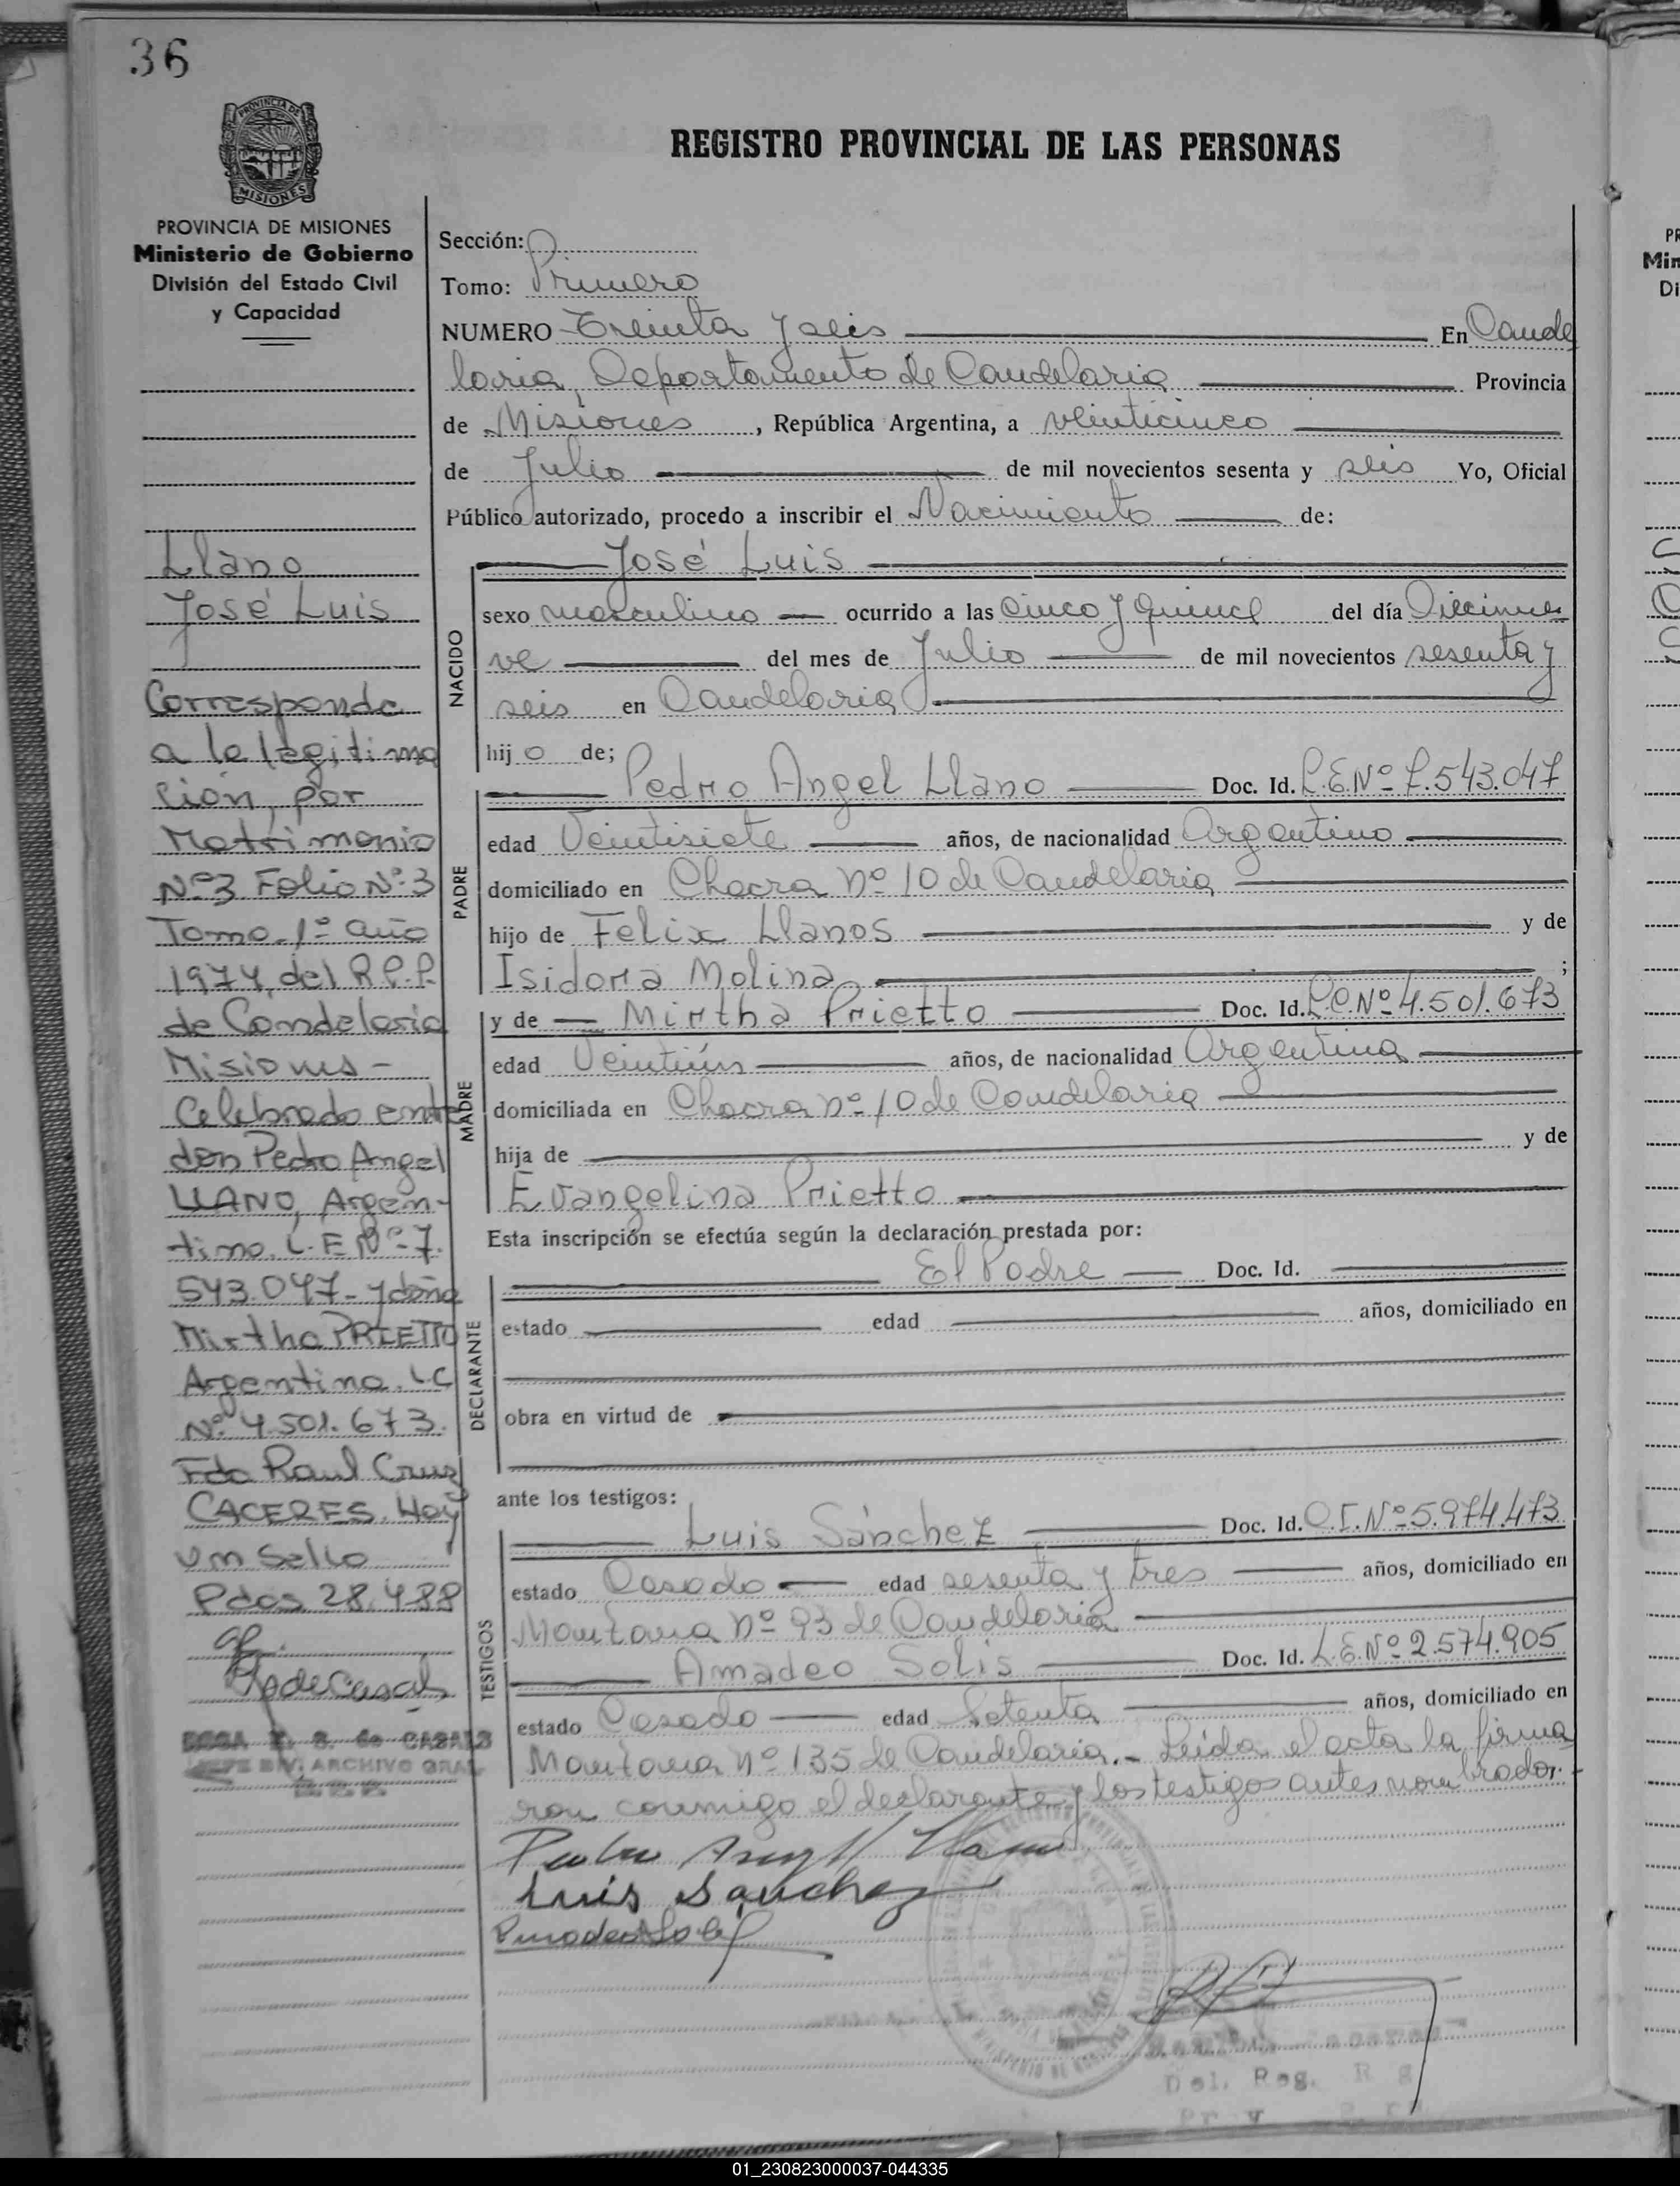 36
PROVINCIA DE
MISIONES
PROVINCIA DE MISIONES
Ministerio de Gobierno
División del Estado Civil
y Capacidad
Llano
José Luis
Corresponde
a la legitima
ción, por
Matrimonio
Nº3 Folio Nº3
Tomo 1º año
1974, del R.P.P.
de Candelaria
Misiones -
Celebrado entre
don Pedro Angel
LLANO, Argen-
tino. L.E Nº 7.
543.047 - y doña
Mirtha PRIETTO
Argentina. L.C
Nº 4.501.673.
Fdo Raul Cruz
CACERES. Hay
un Sello
Pdas 28.4.88
de CASALS
DIV. ARCHIVO GRAL
REGISTRO PROVINCIAL DE LAS PERSONAS
Sección:
Tomo: Primero
NUMERO Treinta y seis En Cande
laria, Departamento de Candelaria Provincia
de Misiones, República Argentina, a veinticinco
de Julio de mil novecientos sesenta y seis Yo, Oficial
Público autorizado, procedo a inscribir el Nacimiento de:
NACIDO
José Luis
sexo masculino ocurrido a las cinco y quince del día Diecinue
ve del mes de Julio de mil novecientos sesenta y
seis en Candelaria
hijo de;
PADRE
Pedro Angel Llano Doc. Id. L.E.Nº 7.543.047
edad Veintisiete años, de nacionalidad Argentino
domiciliado en Chacra nº 10 de Candelaria
hijo de Felix Llanos y de
Isidora Molina ;
MADRE
y de Mirtha Prietto Doc. Id. L.C.Nº 4.501.673
edad Veintiún años, de nacionalidad Argentina
domiciliada en Chacra nº 10 de Candelaria
hija de y de
Evangelina Prietto
Esta inscripción se efectúa según la declaración prestada por:
DECLARANTE
El Padre Doc. Id.
estado edad años, domiciliado en
obra en virtud de
ante los testigos:
TESTIGOS
Luis Sánchez Doc. Id. C.I.Nº 5.974.473
estado Casado edad sesenta y tres años, domiciliado en
Mantana nº 93 de Candelaria
Amadeo Solis Doc. Id. L.E.Nº 2.574.905
estado Casado edad Setenta años, domiciliado en
Mantana nº 135 de Candelaria.- Leída el acta la firma
ron conmigo el declarante y los testigos antes nombrados.-
Pedro Angel Llano
Luis Sanchez
Del. Reg.
01_230823000037-044335